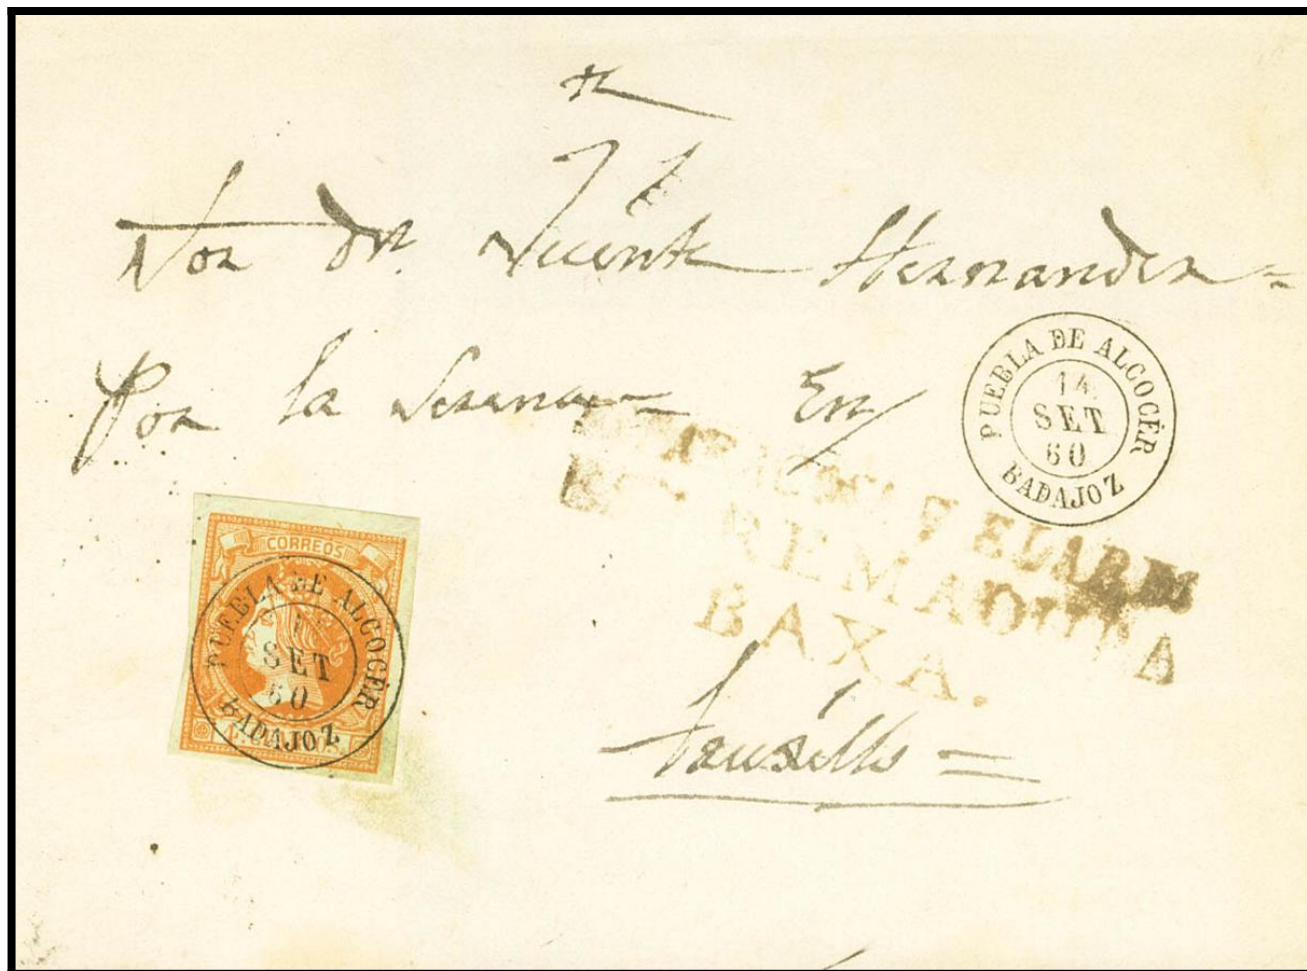 Sor Dn Vicente Hernandez =
Por la Serena En
PUEBLA DE ALCOCÉR
14
SET
60
BADAJOZ
REMADURA
BAXA.
CORREOS
PUEBLA DE ALCOCÉR
SET
60
BADAJOZ
Truxillo =